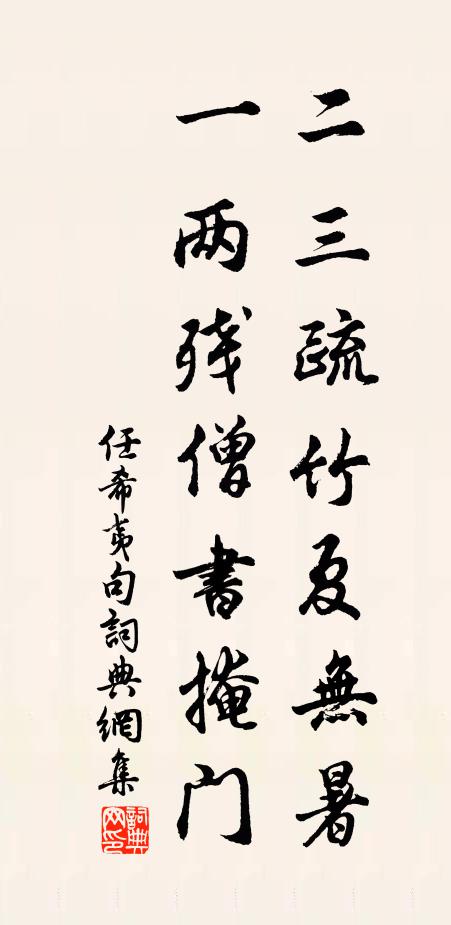 二三疏竹夏無暑
一两残僧書掩门
任希夷句詞典網集
詞典網印